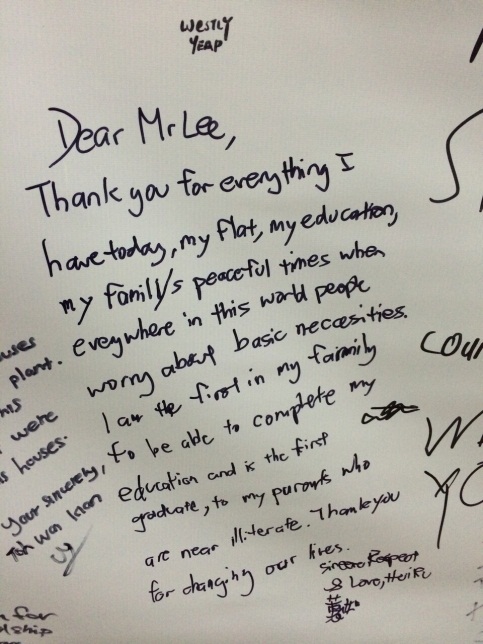 WESTLY
YEAP
Dear Mr Lee,
Thank you for everything I
have today, my flat, my education,
my family's peaceful times when
everywhere in this world people
worry about basic neccesities.
I am the first in my family
to be able to complete my
education and is the first
graduate, to my parents who
are near illiterate. Thank you
for changing our lives.
Sincere Respect
& Love,
plant.
were
houses.
Your sincerely,
for